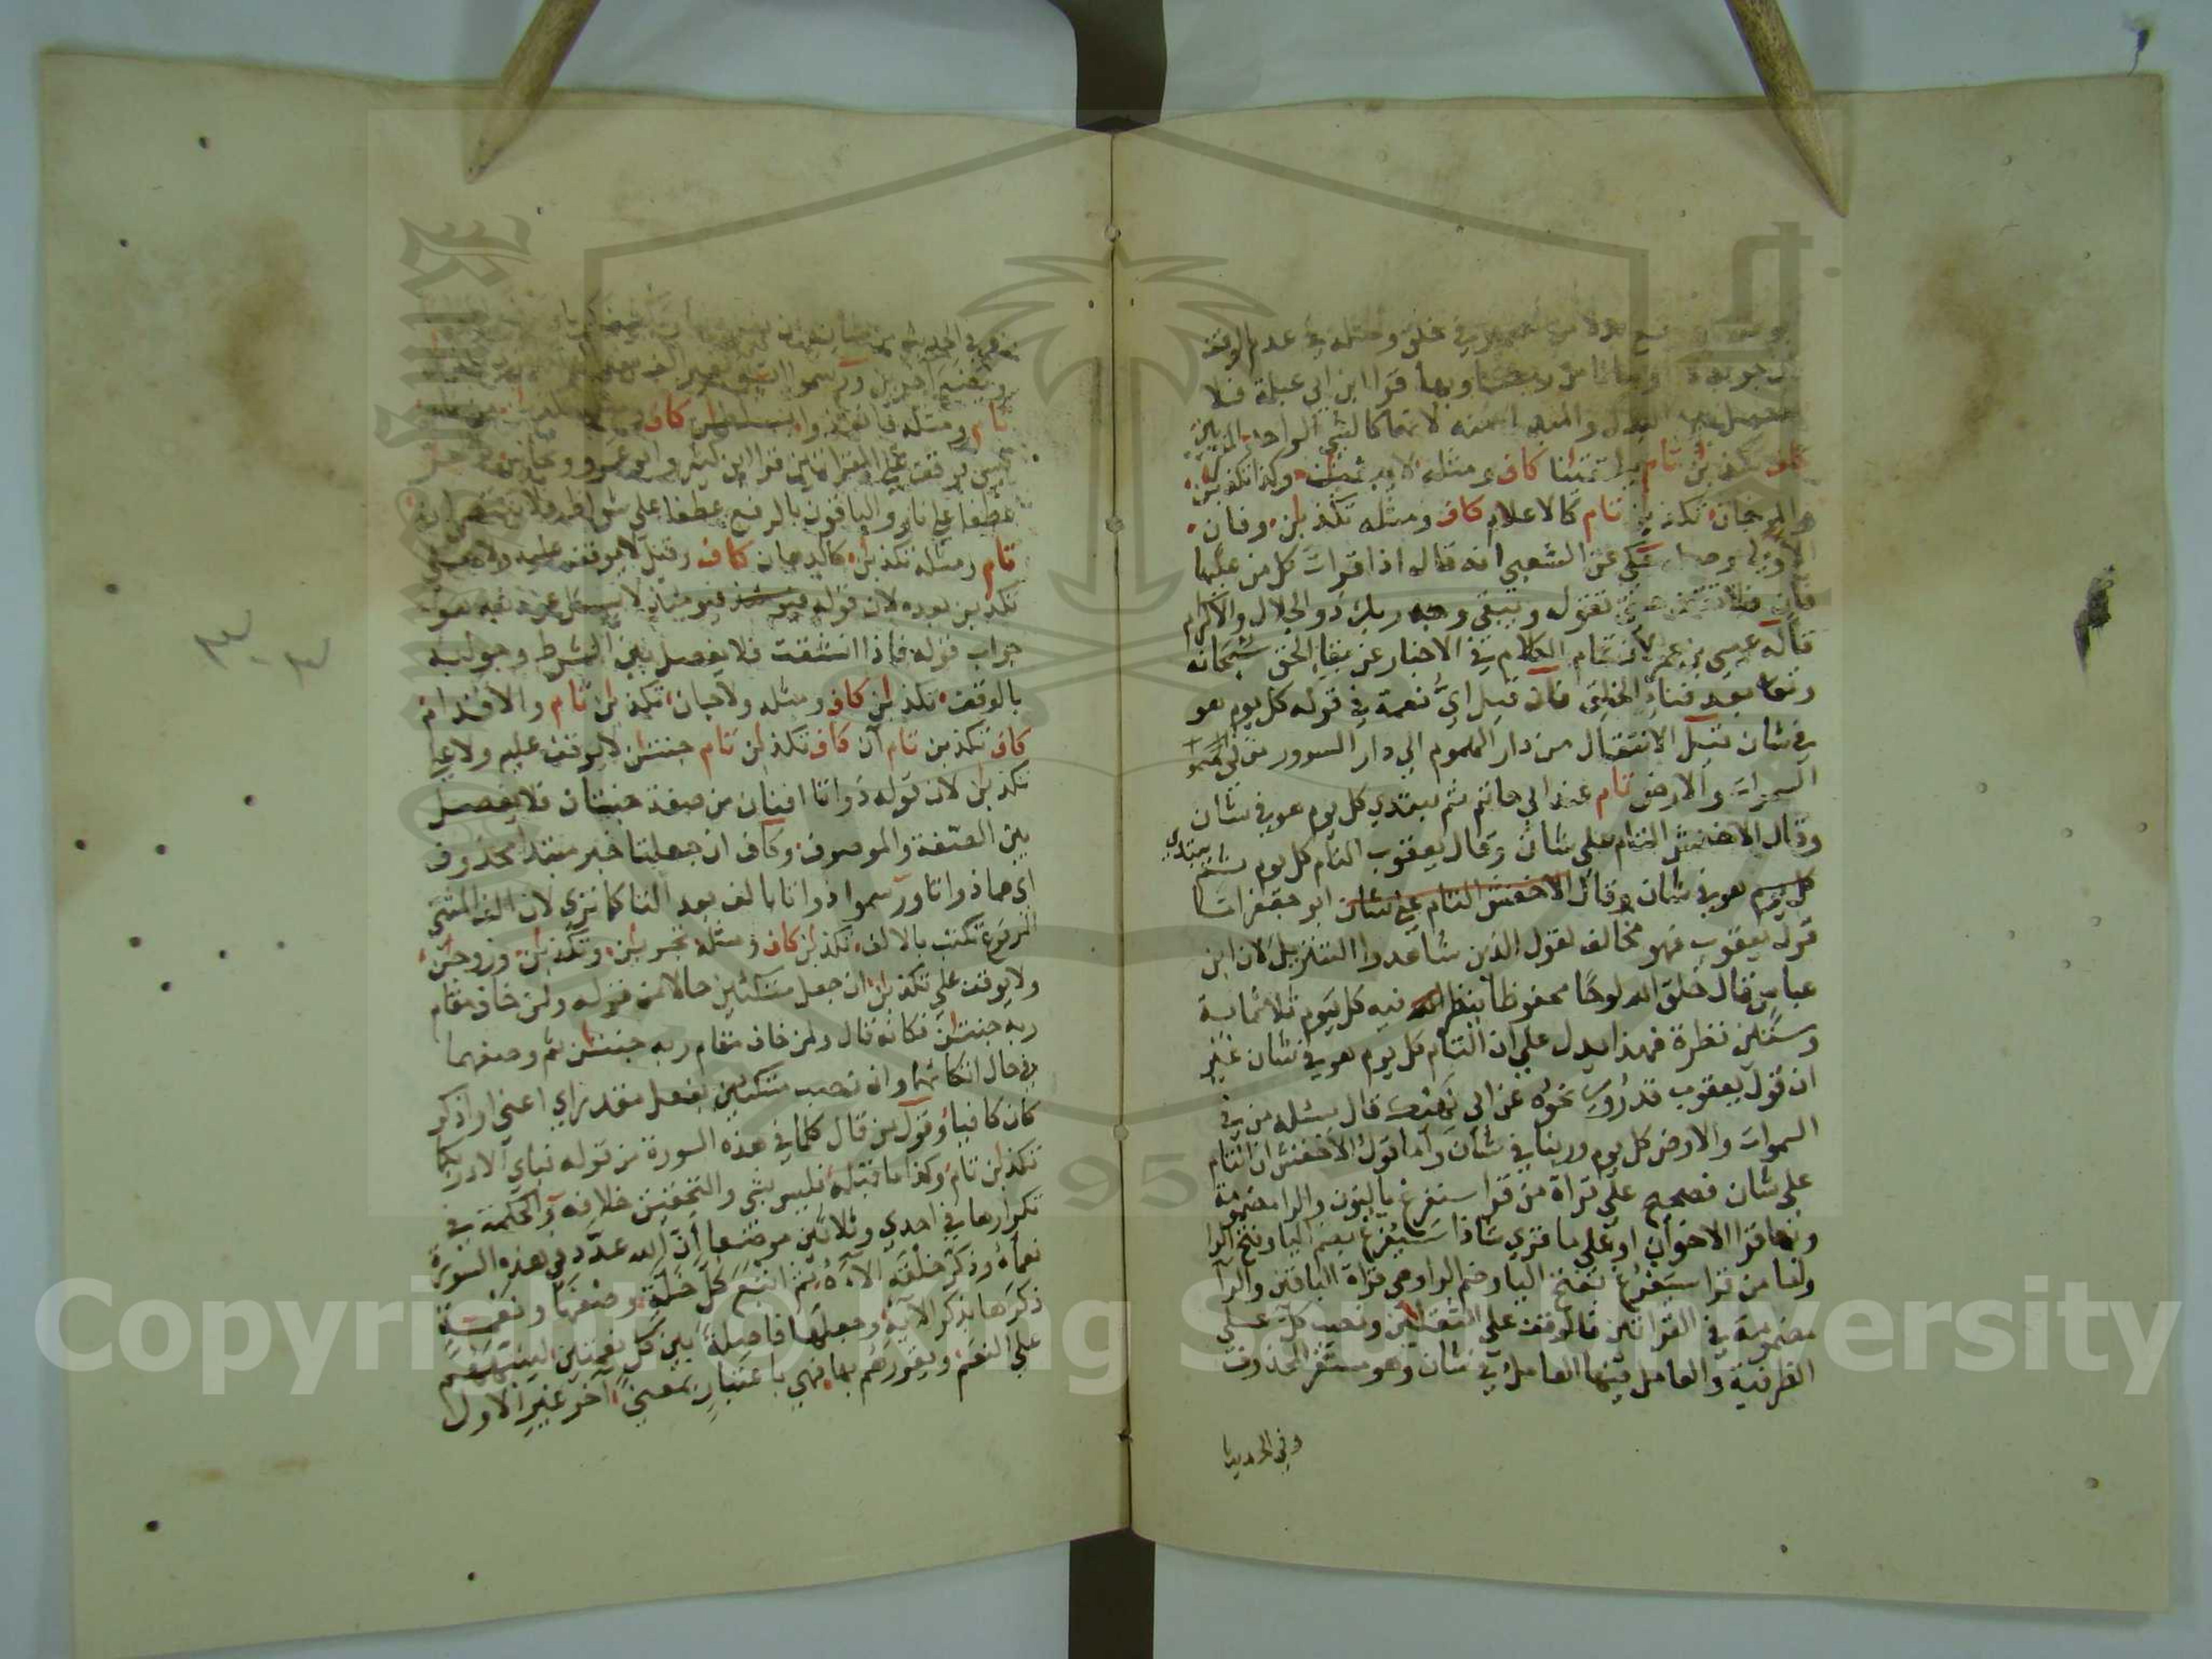 في خلق وخلقه في عدم الوقف
قرا ابن ابي عبلة فلا
البدل والمبدل منه لانهما كالشي الواحد
تكذبن تام يلتقيان كاف ومثله لا يبغيان وكذا تكذبن
والمرجان تكذبن تام كالاعلام كاف ومثله تكذبان وفان
حكي عن الشعبي انه قال اذا قرات كل من عليها
فان فلا تقف حتى تقول ويبقى وجه ربك ذو الجلال والاكرام
قاله عيسى بن عمر لان تمام الكلام في الاخبار عن بقاء الحق سبحانه
بعد فناء الخلق فان قيل اي نعمة في قوله كل يوم هو
في شان قيل الانتقال من دار الهموم الى دار السرور
السموات والارض تام عند ابي حاتم ثم يبتدي كل يوم هو في شان
وقال الاخفش التام على شان وقال يعقوب التام كل يوم ثم يبتدي
كل يوم هو في شان وقال الاخفش التام على شان ابو جعفر اما
قول يعقوب فهو مخالف لقول الذين شاهدوا التنزيل لان ابن
عباس قال خلق الله لوحا محفوظا ينظر الله فيه كل يوم ثلاثمائة
وستين نظرة فهذا يدل على ان التام كل يوم هو في شان غير
ان قول يعقوب قد روي نحوه عن ابي نهيك قال يسئله من في
السموات والارض كل يوم وربنا في شان واما قول الاخفش ان التام
على شان فصحيح على قراة من قرا سنفرغ بالنون والرا مضمومة
وبها قرا الاخوان او على ما قري شاذا سيفرغ بضم اليا وفتح الرا
واما من قرا سيفرغ بفتح اليا وضم الرا وهي قراة الباقين والرا
مضمومة في القراتين فالوقف على الثقلين ونصب كل على
الظرفية والعامل فيها العامل في شان وهو مستقر المحذوف
وفي الحديث
وفي الحديث من شانه ان
ورسموا
تام ومثله فانفذوا بسلطن كاف
على القراتين قرا ابن كثير وابو عمرو ونحاس
عطفا على نار والباقون بالرفع عطفا على شواظ فلا تنتصران
تام ومثله تكذبن كالدهان كاف وقيل لا يوقف عليه ولا على
تكذبن بعده لان قوله فيومئذ لا يسئل عن ذنبه هو
جواب قوله فاذا انشقت فلا يفصل بين الشرط وجوابه
بالوقف تكذبن كاف ومثله ولا جان تكذبن تام والاقدام
كاف تكذبن تام آن كاف تكذبن تام جنتن لا يوقف عليه ولا على
تكذبن لان قوله ذواتا افنان من صفة جنتان فلا يفصل
بين الصفة والموصوف وكاف ان جعلتا خبر مبتدا محذوف
اي هما ذواتا ورسموا ذواتا بالف بعد التا كما ترى لان الف المثنى
المرفوع تكتب بالالف تكذبن كاف ومثله تجرين وتكذبن وزوجن
ولا يوقف على تكذبن ان جعل متكئين حالا من قوله ولمن خاف مقام
ربه جنتن فكانه قال ولمن خاف مقام ربه جنتن ثم وصفهما
في حال اتكائهما وان نصب متكئين بفعل مقدر اي اعني او اذكر
كان كافيا وقول من قال كلما في هذه السورة من قوله فباي الاء ربكما
تكذبن تام وكذا ما قبله فليس بشي والتحقيق خلافه والحكمة في
تكرارها في احدى وثلاثين موضعا ان الله عدد في هذه السورة
نعماه وذكر خلقه الآءه ثم اتبع كل خلة وصفها ونعمة
ذكرها بذكر الاية وجعلها فاصلة بين كل نعمتين لينبههم
على النعم ويقررهم بها فهي باعتبار بمعنى آخر غير الاول
Copyright © King Saud University
1957